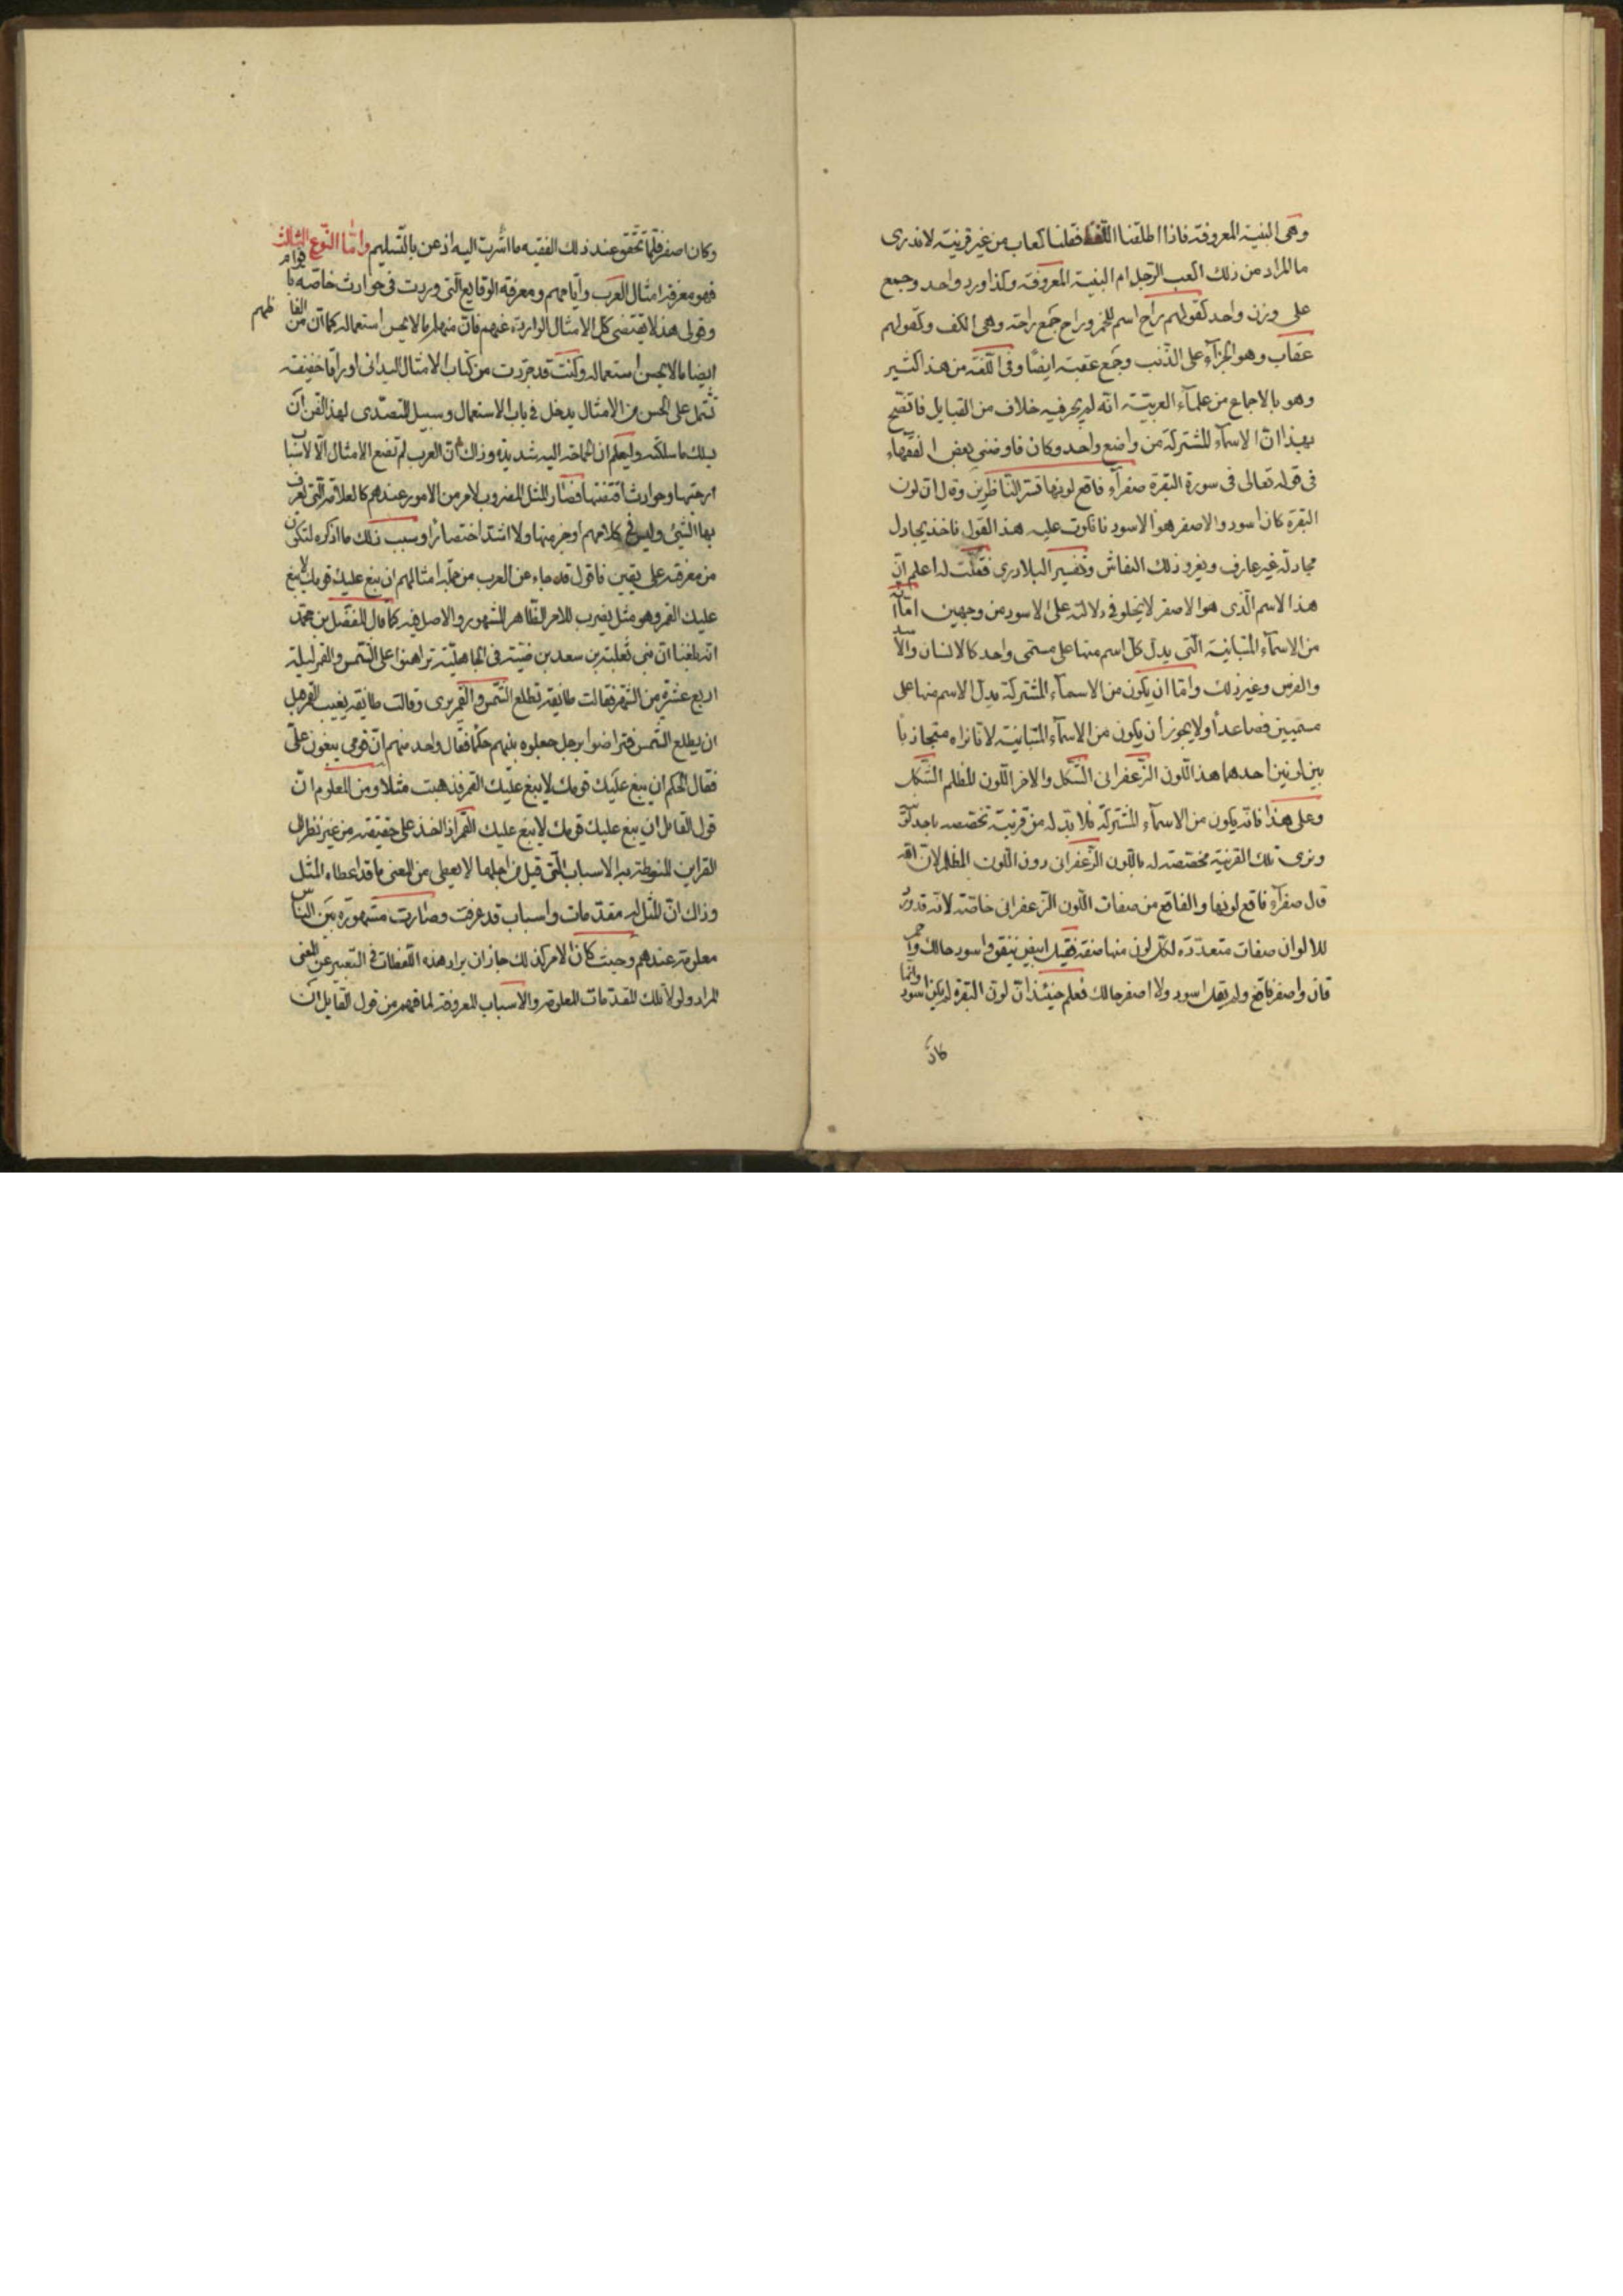 وهى البنية المعروفة فاذا اطلقنا اللفظ فقلنا كعاب من غير قرينة لا ندرى
ما المراد من ذلك الكعب الرجل ام البنية المعروفة وكذا ورد واحد وجمع
على وزن واحد كقولهم راح اسم للخمر وراح جمع راحة وهى الكف وكقولهم
عقاب وهو الجزآء على الذنب وجمع عقبة ايضًا وفى اللغة من هذا كثير
وهو بالاجماع من علمآء العربية انه لم يجر فيه خلاف من القبايل فاتضح
بهذا ان الاسمآء المشتركة من واضع واحد وكان فاوضنى بعض الفقهاء
فى قوله تعالى فى سورة البقرة صفرآء فاقع لونها تسر الناظرين وقال ان لون
البقرة كان اسود والاصفر هو الاسود فانكرت عليه هذا القول فاخذ يجادل
مجادلة غير عارف ويعزو ذلك النقاش وتفسير البلاذرى فقلت له اعلم ان
هذا الاسم الذى هو الاصفر لا يخلو فى دلالته على الاسود من وجهين امّا انه
من الاسمآء المتباينة التى يدل كل اسم منها على مسمى واحد كالانسان والاسد
والفرس وغير ذلك وامّا ان يكون من الاسمآء المشتركة يدل الاسم منها على
مسميين فصاعداً ولا يجوز ان يكون من الاسمآء المتباينة لانا نراه متجاذبا
بين لونين احدهما هذا اللون الزعفرانى الشكل والاخر اللون المظلم الشكل
وعلى هذا فانه يكون من الاسمآء المشتركة فلا بد له من قرينة تخصصه
ونرى تلك القرينة مخصصة له باللون الزعفرانى دون اللون المظلم لان الله
قال صفرآء فاقع لونها والفاقع من صفات اللون الزعفرانى خاصة لانه قد ورد
للالوان صفات متعددة لكل لون منها صفة فقيل ابيض يقق واسود حالك واحمر
قان واصفر فاقع ولم يقل اسود ولا اصفر حالك فعلم حينئذ ان لون البقرة لم يكن اسود وانما
كان
وكان اصفر فلما تحقق عند ذلك الفقيه ما اشرت اليه اذعن بالتسليم وامّا النوع الثالث
فهو معرفة امثال العرب وايامهم ومعرفة الوقايع التى وردت فى حوادث خاصة باقوام
وقولى هذا لا يقتضى كل الامثال الواردة عنهم فان منها ما لا يحسن استعماله كما ان من الفاظهم
ايضا ما لا يحسن استعماله وكنت قد جردت من كتاب الامثال للميدانى اوراقا خفيفة
تشتمل على الحسن من الامثال يدخل فى باب الاستعمال وسبيل المتصدى لهذا الفن ان
يسلك ما سلكته وليعلم ان الحاجة اليه شديدة وذاك ان العرب لم تضع الامثال الّا لاسباب
اوجبتها وحوادث اقتضتها فصار المثل المضروب لامر من الامور عندهم كالعلامة التى يعرف
بها الشئ وليس فى كلامهم اوجز منها ولا اشد اختصارًا وسبب ذلك ما اذكره لتكون
من معرفته على يقين فاقول قد جاء عن العرب من جملة امثالهم ان يبغ عليك قومك لا يبغ
عليك القمر وهو مثل يضرب للامر الظاهر المشهور والاصل فيه كما قال المفضل بن محمد
انه بلغنا ان بنى ثعلبة بن سعد بن ضبة فى الجاهلية تراهنوا على الشمس والقمر ليلة
اربع عشرة من الشهر فقالت طايفة تطلع الشمس والقمر يرى وقالت طايفة يغيب القمر قبل
ان يطلع الشمس فتراضوا برجل جعلوه بينهم حكمًا فقال واحد منهم ان قومى يبغون علىّ
فقال الحكم ان يبغ عليك قومك لا يبغ عليك القمر فذهبت مثلا ومن المعلوم ان
قول القايل ان يبغ عليك قومك لا يبغ عليك القمر اذا اخذ على حقيقته من غير نظر الى
القراين المنوطة به الاسباب التى قيل من اجلها لا يعطى من المعنى ما قد اعطاه المثل
وذاك ان المثل له مقدمات واسباب قد عرفت وصارت مشهورة بين الناس
معلومة عندهم وحيث كان الامر كذلك جاز ايراد هذه اللفظات فى التعبير عن المعنى
المراد ولولا تلك المقدمات المعلومة والاسباب المعروفة لما فهم من قول القايل ان